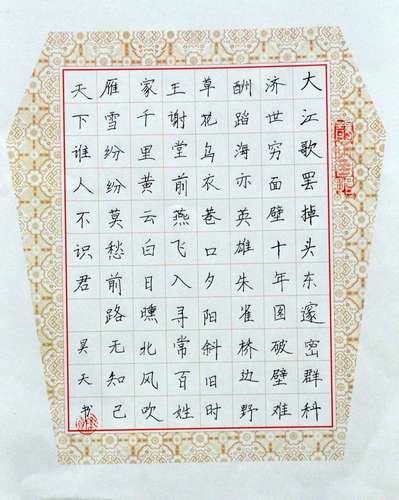 大江歌罢掉头东邃密群科
济世穷面壁十年图破壁难
酬蹈海亦英雄朱雀桥边野
草花乌衣巷口夕阳斜旧时
王谢堂前燕飞入寻常百姓
家千里黄云白日曛北风吹
雁雪纷纷莫愁前路无知己
天下谁人不识君
昊天书